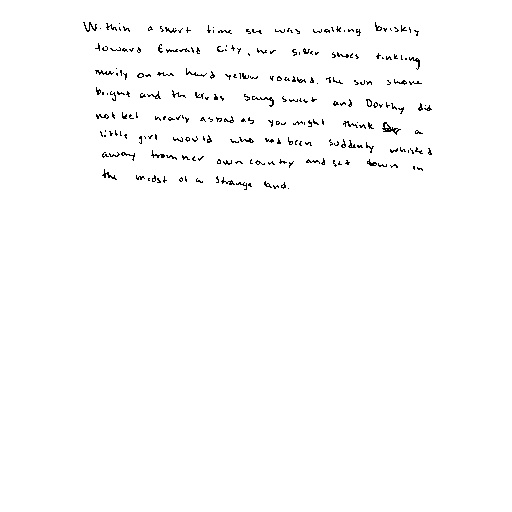 Within a short time she was walking briskly
toward Emerald City, her Silver Shoes tinkling
merily on the hard yellow roadbed. The sun shone
bright and the birds sang sweet and Dorthy did
not feel nearly as bad as you might think a
little girl would who had been suddenly whisked
away from her own country and set down in
the midst of a strange land.